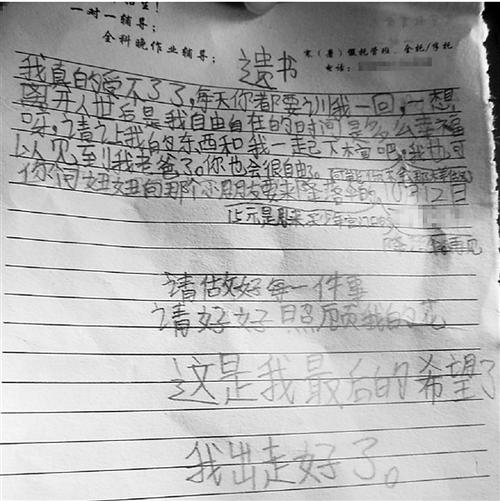 一对一辅导；
全科晚作业辅导；
寒（暑）假托管班、全托/学托
电话：
遗书
我真的受不了了，每天你都要训我一回，一想
离开人世后是我自由自在的时间是多么幸福
呀，请让我的东西和我一起下棺吧，我也可
以见到我老爸了。你也会很自由。
你问妞妞的那个小朋友要来 10月12日
请做好每一件事
请好好照顾我的花
这是我最后的希望了
我出走好了。